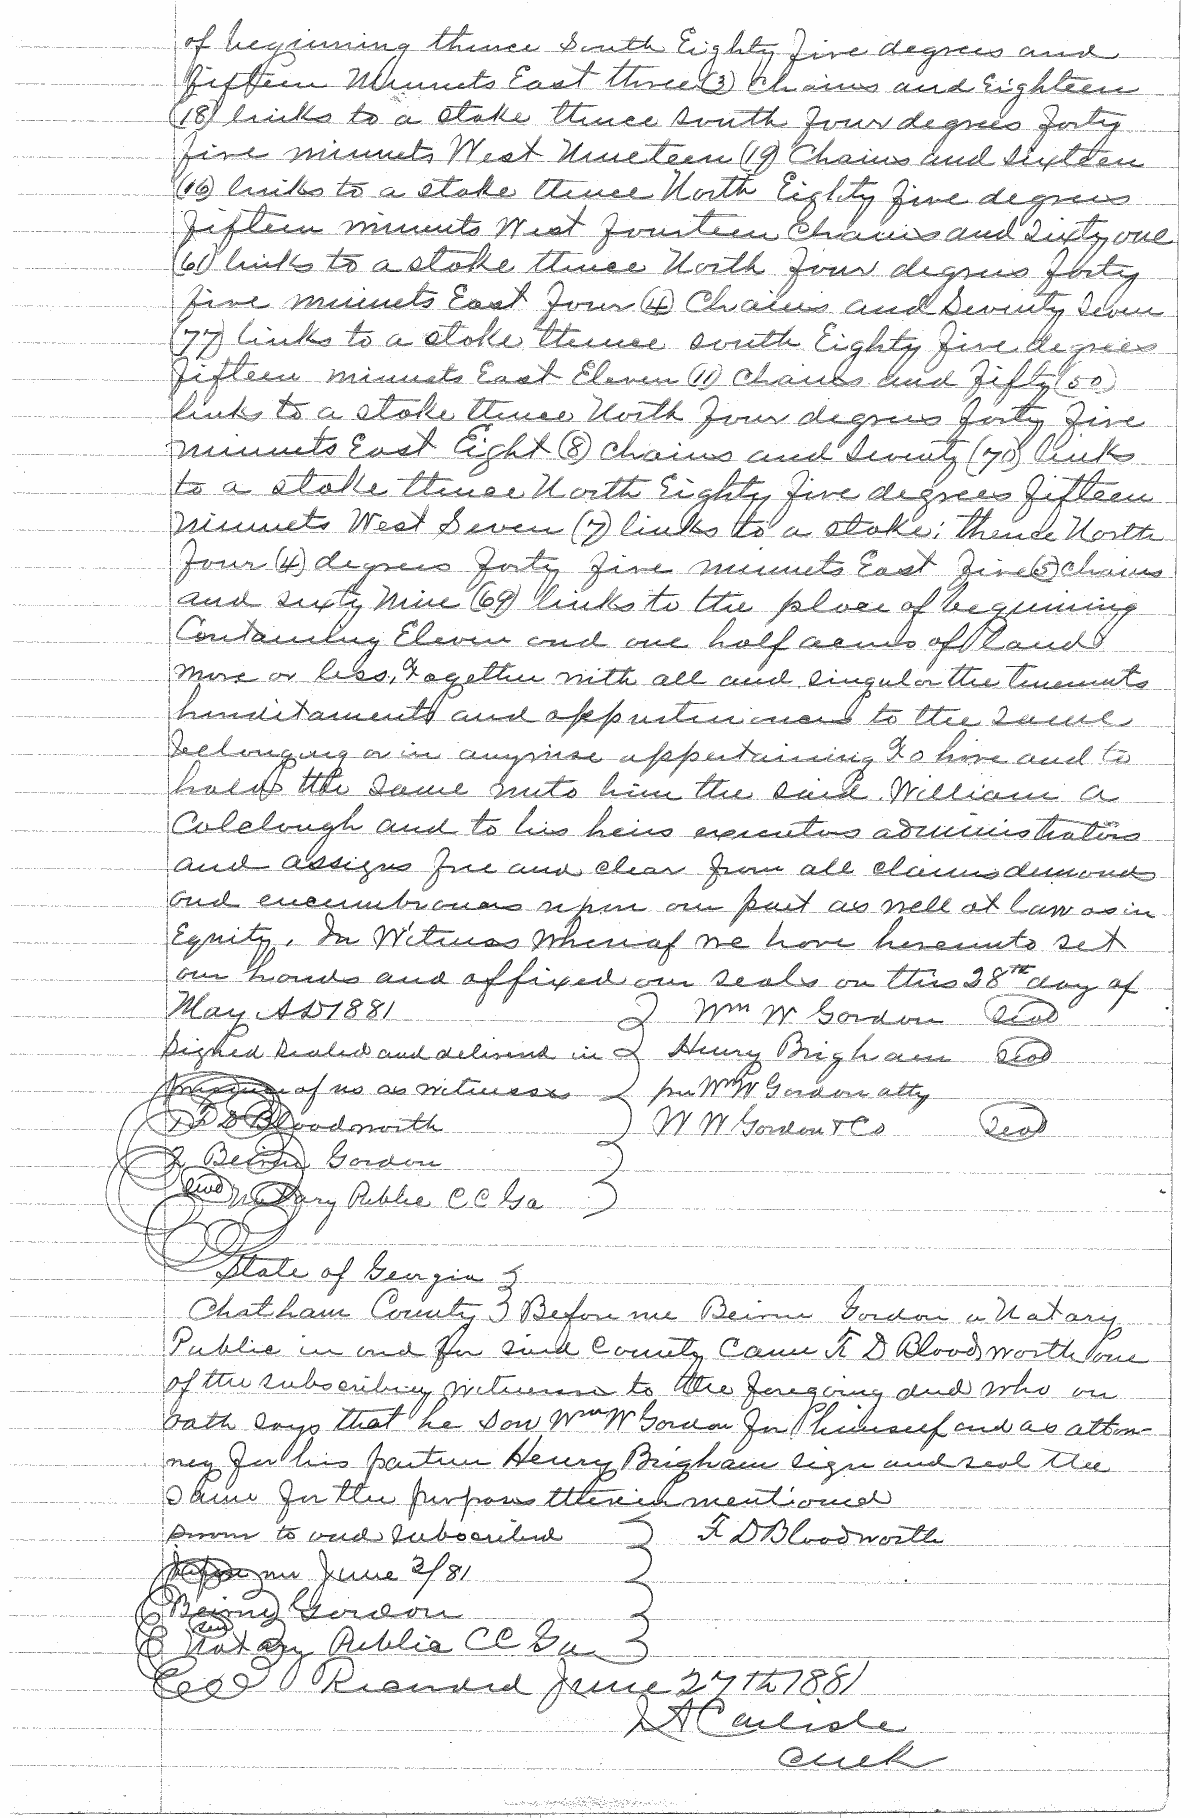 of beginning thence South Eighty five degrees and
fifteen Minnets East three (3) Chains and Eighteen
(18) links to a stake thence south four degrees forty
five minnets West Nineteen (19) Chains and sixteen
(16) links to a stake thence North Eighty five degrees
fifteen minnets West fourteen Chains and Sixty one
(61) links to a stake thence North four degrees forty
five minnets East four (4) Chains and Seventy Seven
(77) links to a stake thence south Eighty five degrees
fifteen minnets East Eleven (11) chains and fifty (50)
links to a stake thence North four degrees forty five
minnets East Eight (8) chains and Seventy (70) links
to a stake thence North Eighty five degrees fifteen
minnets West Seven (7) links to a stake; thence North
four (4) degrees forty five minnets East five (5) chains
and sixty Nine (69) links to the place of beginning
Containing Eleven and one half acres of land
more or less, Together with all and singular the tenements
hereditaments and appurtenances to the same
belonging or in anywise appertaining To have and to
hold the same unto him the said William A
Colclough and to his heirs executors administrators
and assigns free and clear from all claims demands
and encumbrances upon our part as well at law as in
Equity. In Witness whereof we have hereunto set
our hands and affixed our seals on this 28th day of
May AD 1881 Wm W Gordon Seal
Signed sealed and delivered in Henry Brigham Seal
presence of us as witnesses per Wm W Gordon atty
F D Bloodworth W W Gordon & Co Seal
Beirne Gordon
Seal Notary Public C C Ga
State of Georgia
Chatham County Before me Beirne Gordon a Notary
Public in and for said County Came F D Bloodworth one
of the subscribing witnesses to the foregoing deed who on
oath says that he saw Wm W Gordon for himself and as attor-
ney for his partner Henry Brigham sign and seal the
same for the purposes therein mentioned
sworn to and subscribed F D Bloodworth
before me June 2/81
Beirne Gordon
Seal
Notary Public C C Ga
Recorded June 27th 1881
A Carlisle
Clerk